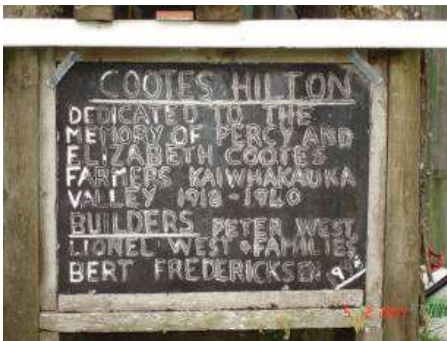 COOTES HILTON
DEDICATED TO THE
MEMORY OF PERCY AND
ELIZABETH COOTES
FARMERS KAIWHAKAUKA
VALLEY 1918 - 1940
BUILDERS PETER WEST
LIONEL WEST & FAMILIES
BERT FREDERICKSEN